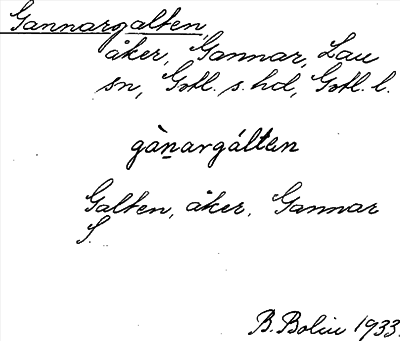 Gannargalten,
åker, Gannar, Lau
sn, Gotl. s. hd, Gotl. l.
gànargálten
Galten, åker, Gannar
S.
B. Bolin 1933.